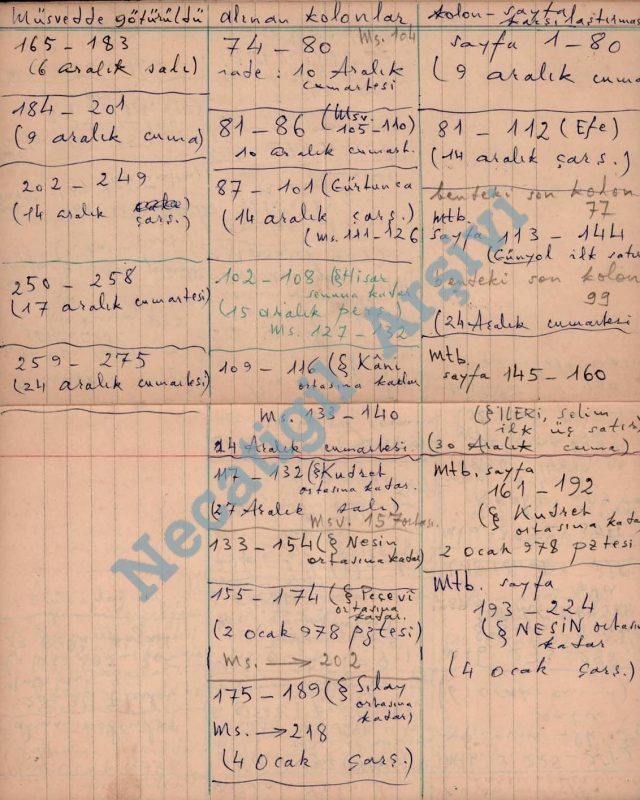 Müsvedde götürüldü
165 - 183
(6 aralık salı)
184 - 201
(9 aralık cuma)
202 - 249
(14 aralık
çarş.)
250 - 258
(17 aralık cumartesi)
259 - 275
(24 aralık cumartesi)
alınan kolonlar
Ms. 104
74 - 80
iade : 10 Aralık
cumartesi
81 - 86 (Msv.
105 - 110)
10 aralık cumart.
87 - 101 (Gürtunca
(14 aralık çarş.)
(Ms. 111 - 126
102 - 108 (§ Hisar
sonuna kadar
(15 aralık perş.)
Ms. 127 - 132
109 - 116 (§ Kâni
ortasına kadar
Ms. 133 - 140
24 Aralık cumartesi
117 - 132 (§ Kudret
ortasına kadar.
(27 Aralık salı)
Msv. 157 ortası.
133 - 154 (§ Nesin
ortasına kadar)
155 - 174 (§ Peçevî
ortasına
kadar.
(2 ocak 978 pztesi)
Ms. → 202
175 - 189 (§ Sılay
ortasına
kadar)
Ms. → 218
(4 Ocak çarş.)
kolon - sayfa
karşılaştırması
sayfa 1 - 80
(9 aralık cuma
81 - 112 (Efe)
(14 aralık çarş.)
bendeki son kolon
77
mtb.
sayfa 113 - 144
(Günyol ilk satır
bendeki son kolon
99
(24 Aralık cumartesi
Mtb.
sayfa 145 - 160
(§ İLERİ, Selim
ilk üç satır)
(30 Aralık cuma)
Mtb. sayfa
161 - 192
(§ Kudret
ortasına kadar
2 ocak 978 pztesi
Mtb. sayfa
193 - 224
(§ NESİN ortasına
kadar
(4 ocak çarş.)
Necatigil Arşivi